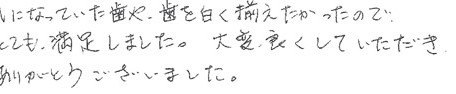 になっていた歯や、歯を白く揃えたかったので、
とても、満足しました。 大変、良くしていただき、
ありがとうございました。